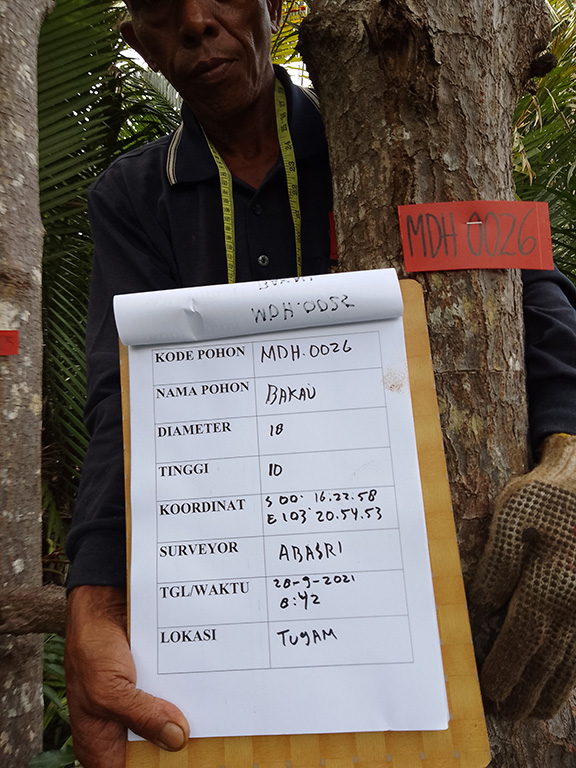 MDH 0026
MDH.0052
KODE POHON MDH.0026
NAMA POHON BAKAU
DIAMETER 18
TINGGI 10
KOORDINAT S 00° 16.22.58
E 103° 20.54.53
SURVEYOR ABASRI
TGL/WAKTU 28-9-2021
8:42
LOKASI TUGAM